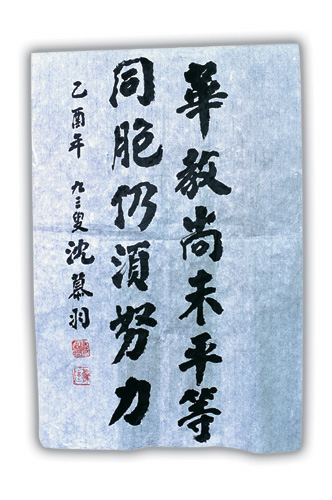 華教尚未平等
同胞仍須努力
乙酉年 九三叟 沈慕羽